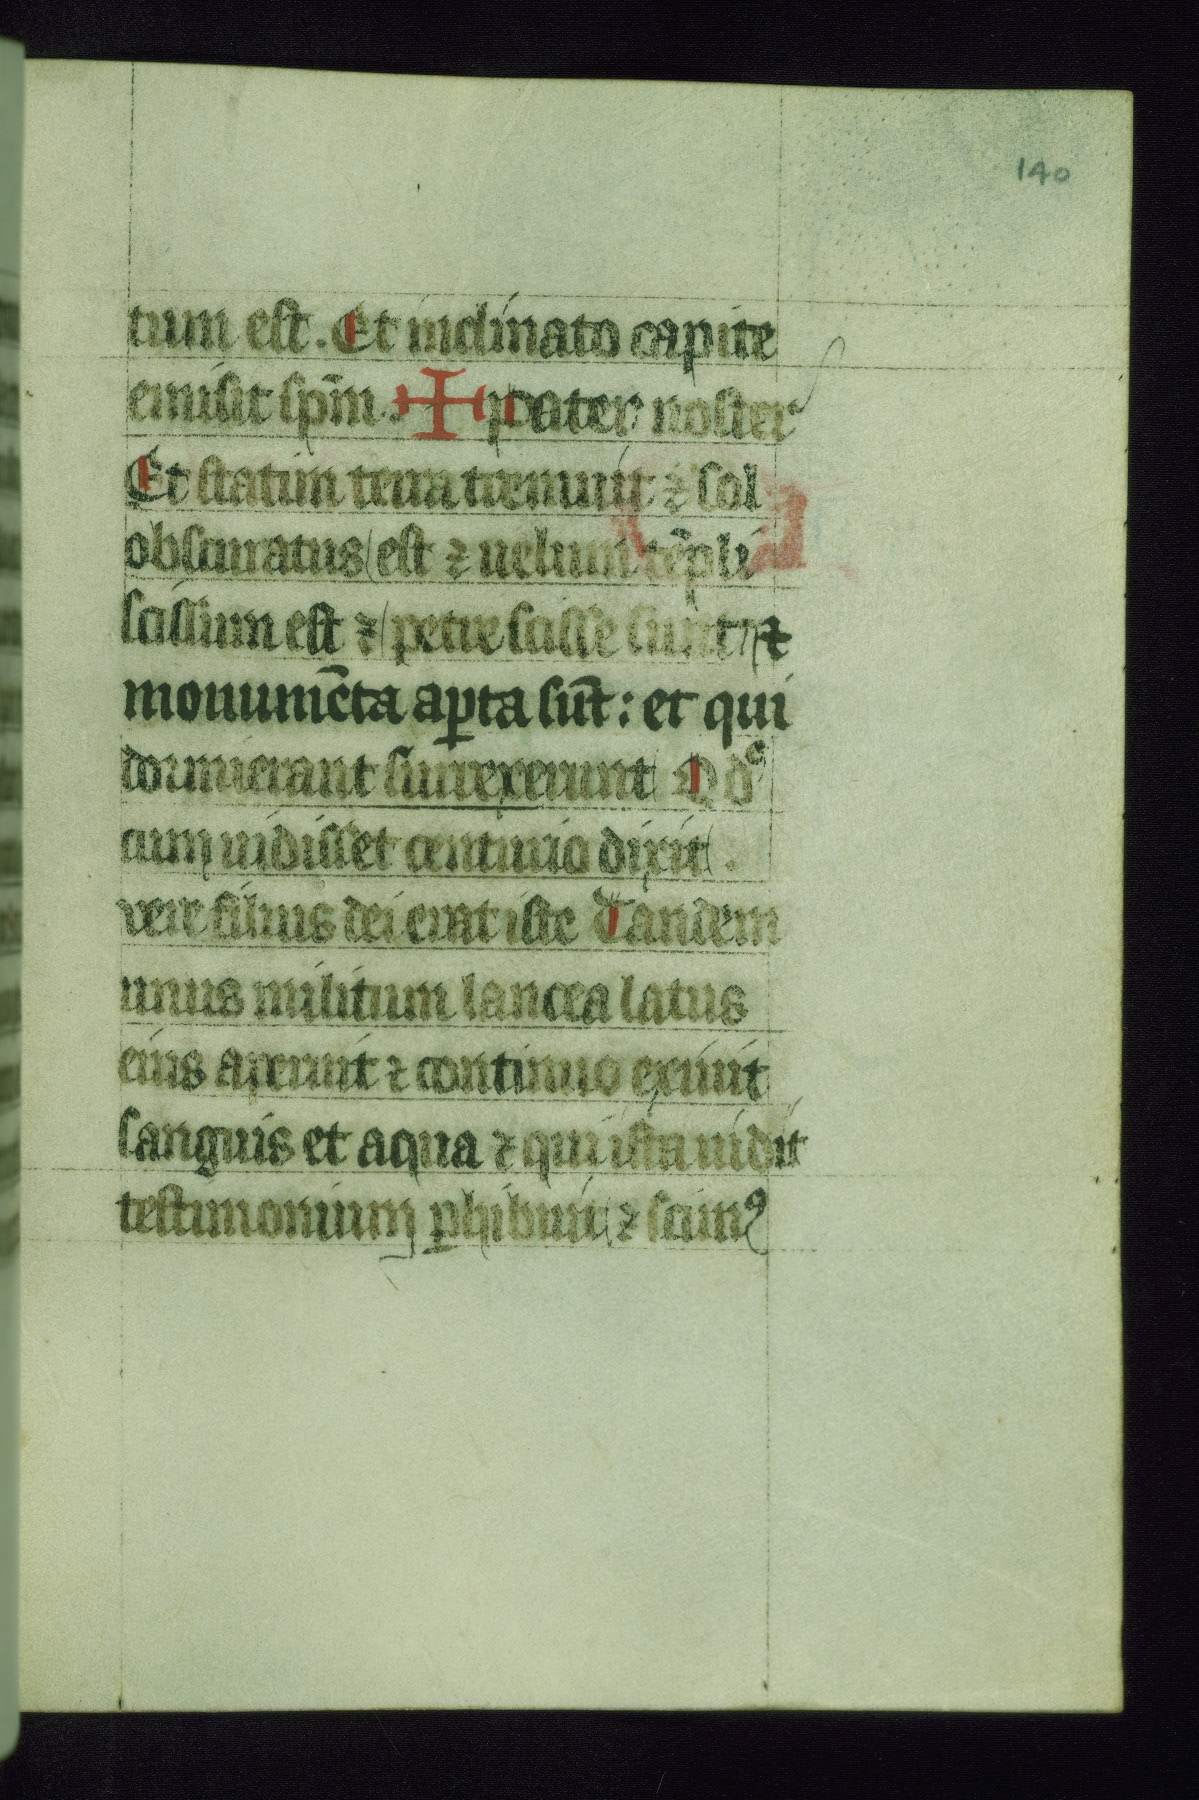 140
tum est. Et inclinato capite
emisit sp̄m. ✠ pater noster
Et statim terra tremuit ⁊ sol
obscuratus est ⁊ uelum tēpli
scissum est ⁊ petre scisse sunt ⁊
monumēta aꝑta sūt: et qui
dormierant surrexerunt Qd
cum uidisset centurio dixit .
vere filius dei erat iste Tandem
unus militum lancea latus
eius aperuit ⁊ continuo exiuit
sanguis et aqua ⁊ qui ista uidit
testimonium ꝑhibuit ⁊ scimꝰ